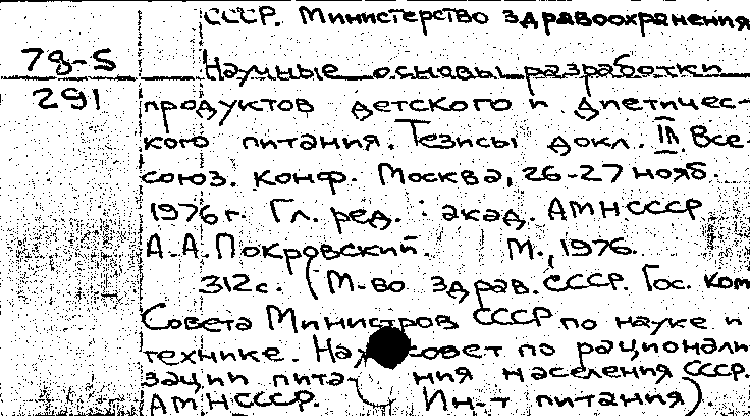 СССР. Министерство здравоохранения
78-5
Научные основы разработки
291
продуктов детского и диетичес-
кого питания. Тезисы докл. II Все-
союз. конф. Москва, 26-27 нояб.
1976 г. Гл. ред.: акад. АМН СССР
А.А. Покровский. М., 1976.
312с. (М-во здрав. СССР. Гос. ком
Совета Министров СССР по науке и
технике. совет по рационали
зации пита- ния населения СССР.
АМН СССР. Ин-т питания).